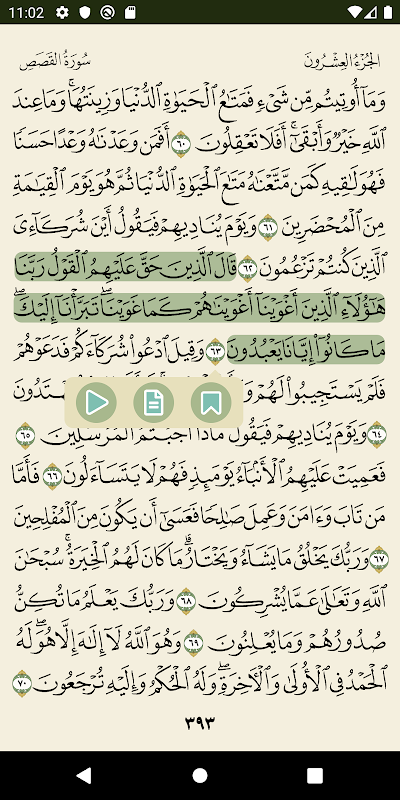 11:02
الجُزْءُ العِشْرُونَ
سُورَةُ القَصَصِ
وَمَآ أُوتِيتُم مِّن شَىْءٍ فَمَتَٰعُ ٱلْحَيَوٰةِ ٱلدُّنْيَا وَزِينَتُهَا ۚ وَمَا عِندَ
ٱللَّهِ خَيْرٌ وَأَبْقَىٰٓ ۚ أَفَلَا تَعْقِلُونَ ٦٠ أَفَمَن وَعَدْنَٰهُ وَعْدًا حَسَنًا
فَهُوَ لَٰقِيهِ كَمَن مَّتَّعْنَٰهُ مَتَٰعَ ٱلْحَيَوٰةِ ٱلدُّنْيَا ثُمَّ هُوَ يَوْمَ ٱلْقِيَٰمَةِ
مِنَ ٱلْمُحْضَرِينَ ٦١ وَيَوْمَ يُنَادِيهِمْ فَيَقُولُ أَيْنَ شُرَكَآءِىَ
ٱلَّذِينَ كُنتُمْ تَزْعُمُونَ ٦٢ قَالَ ٱلَّذِينَ حَقَّ عَلَيْهِمُ ٱلْقَوْلُ رَبَّنَا
هَٰٓؤُلَآءِ ٱلَّذِينَ أَغْوَيْنَآ أَغْوَيْنَٰهُمْ كَمَا غَوَيْنَا ۖ تَبَرَّأْنَآ إِلَيْكَ ۖ
مَا كَانُوٓا۟ إِيَّانَا يَعْبُدُونَ ٦٣ وَقِيلَ ٱدْعُوا۟ شُرَكَآءَكُمْ فَدَعَوْهُمْ
فَلَمْ يَسْتَجِيبُوا۟ لَهُمْ يَهْتَدُونَ
٦٤ وَيَوْمَ يُنَادِيهِمْ فَيَقُولُ مَاذَآ أَجَبْتُمُ ٱلْمُرْسَلِينَ ٦٥
فَعَمِيَتْ عَلَيْهِمُ ٱلْأَنۢبَآءُ يَوْمَئِذٍ فَهُمْ لَا يَتَسَآءَلُونَ ٦٦ فَأَمَّا
مَن تَابَ وَءَامَنَ وَعَمِلَ صَٰلِحًا فَعَسَىٰٓ أَن يَكُونَ مِنَ ٱلْمُفْلِحِينَ
٦٧ وَرَبُّكَ يَخْلُقُ مَا يَشَآءُ وَيَخْتَارُ ۗ مَا كَانَ لَهُمُ ٱلْخِيَرَةُ ۚ سُبْحَٰنَ
ٱللَّهِ وَتَعَٰلَىٰ عَمَّا يُشْرِكُونَ ٦٨ وَرَبُّكَ يَعْلَمُ مَا تُكِنُّ
صُدُورُهُمْ وَمَا يُعْلِنُونَ ٦٩ وَهُوَ ٱللَّهُ لَآ إِلَٰهَ إِلَّا هُوَ ۖ لَهُ
ٱلْحَمْدُ فِى ٱلْأُولَىٰ وَٱلْءَاخِرَةِ ۖ وَلَهُ ٱلْحُكْمُ وَإِلَيْهِ تُرْجَعُونَ ٧٠
٣٩٣